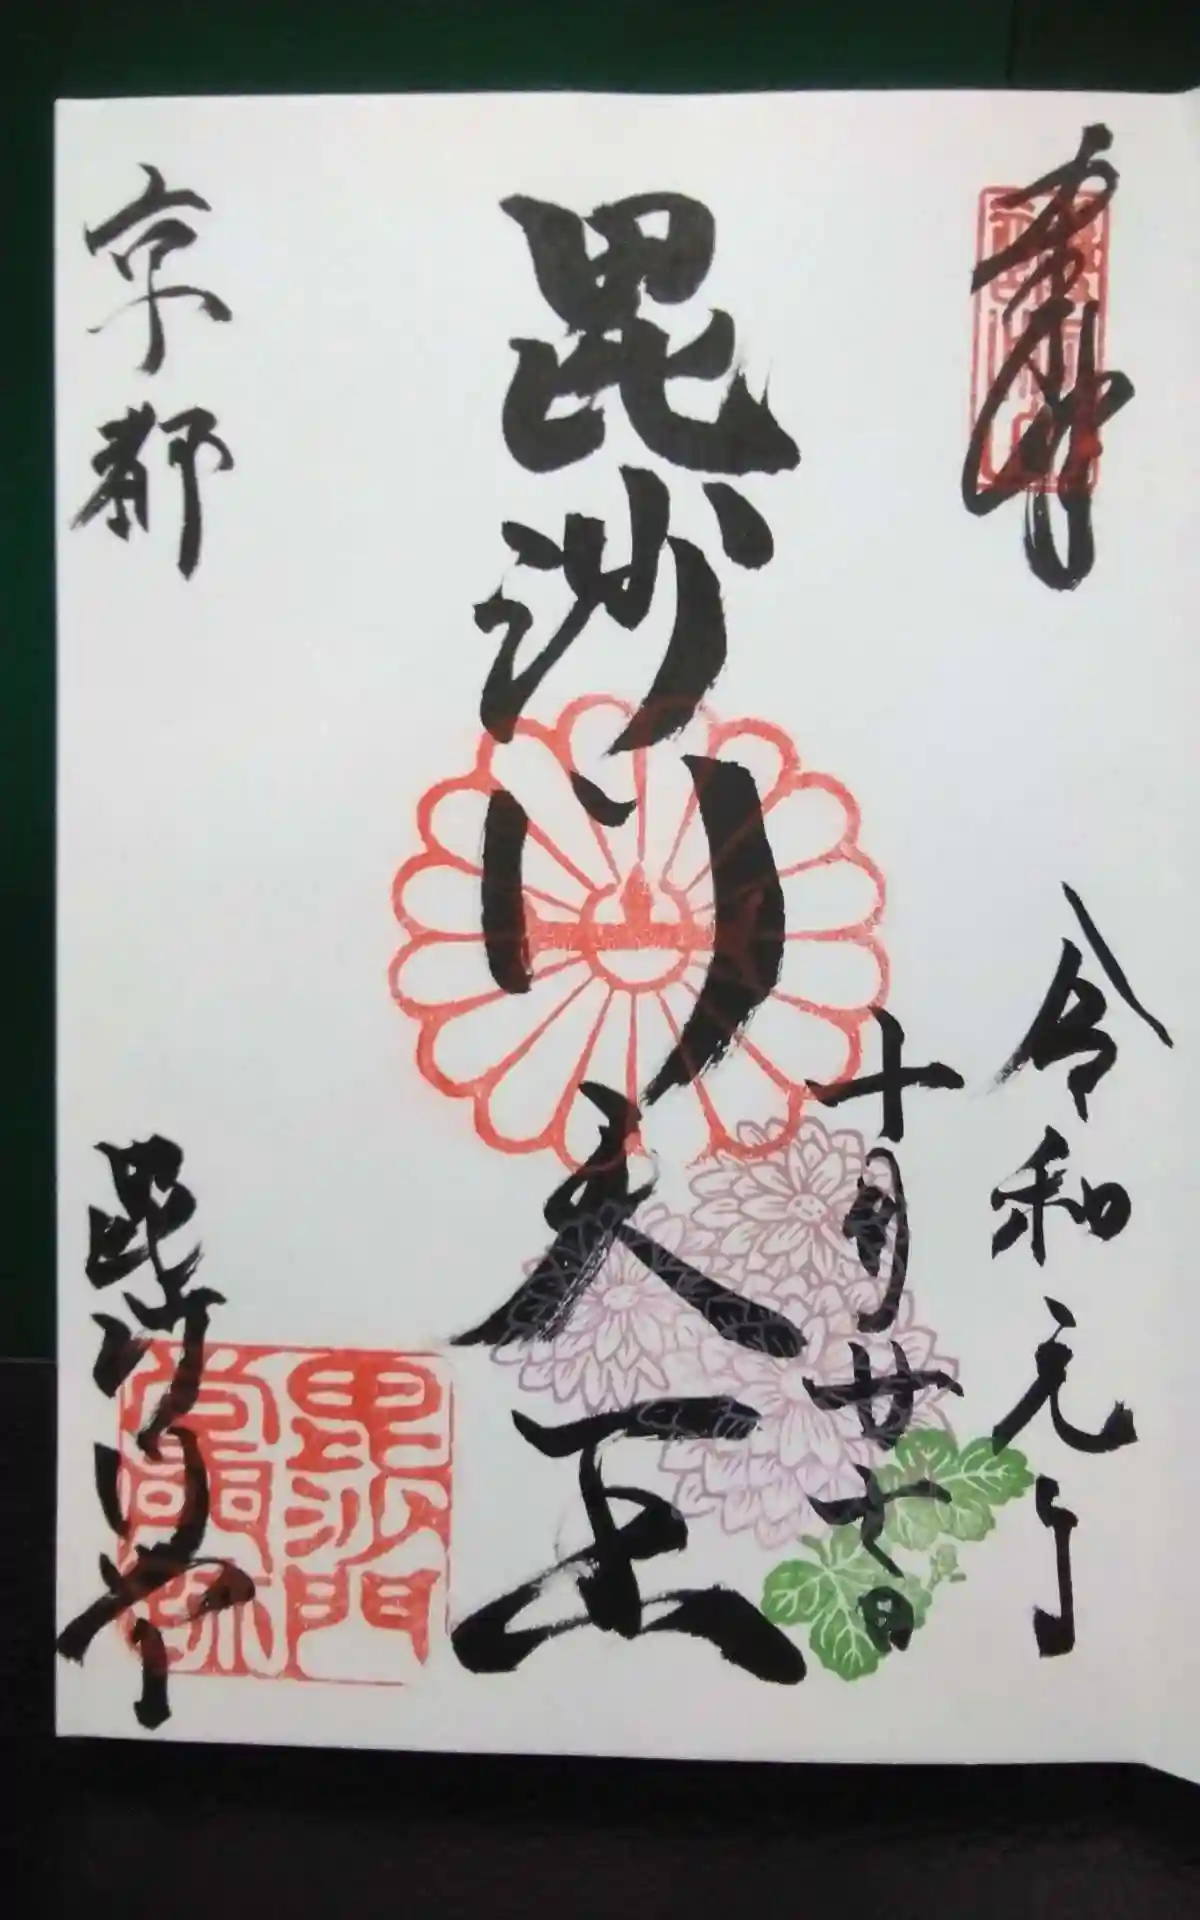 奉拝
令和元年
十月廿七日
毘沙門天王
京都
毘沙門堂
毘沙門
堂門跡